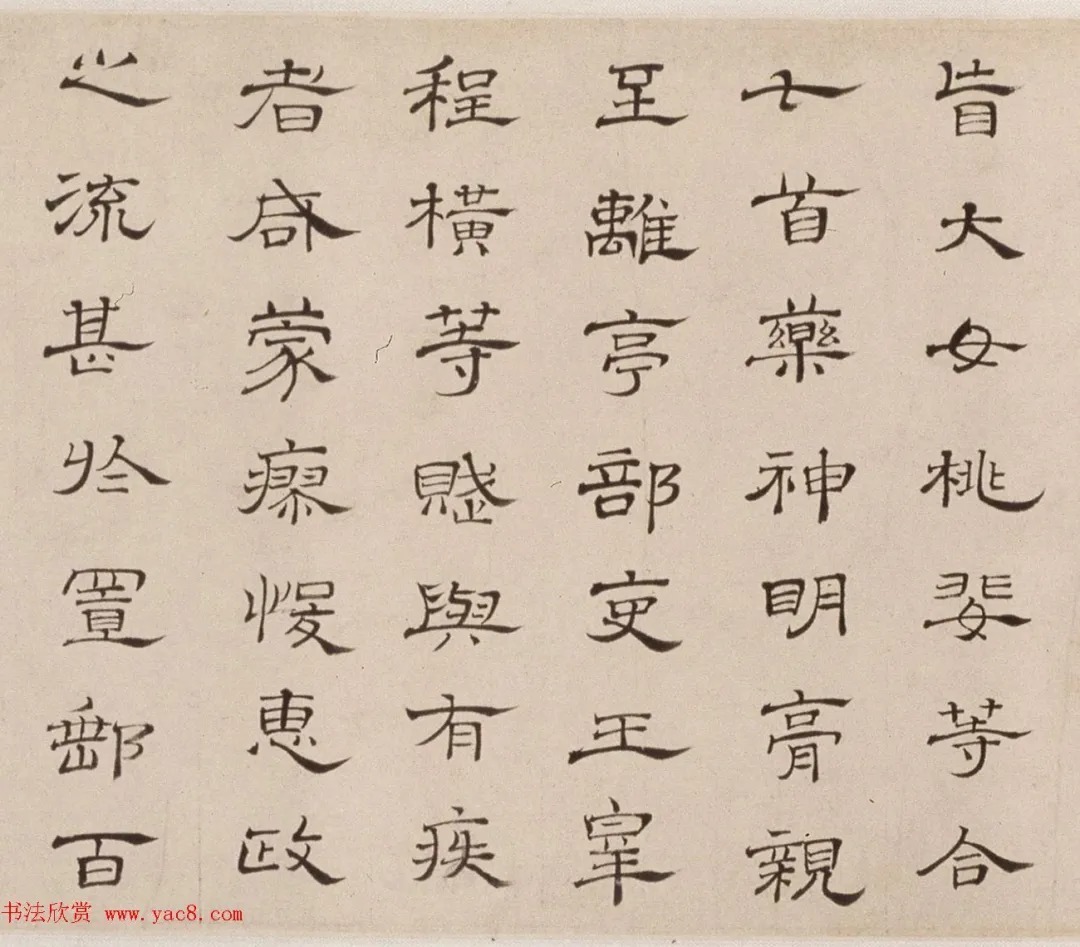 眥大女桃婓等合
七首藥神明膏親
至離亭部吏王宰
程橫等賦與有疾
者咸蒙瘳悛惠政
之流甚於置郵百
书法欣赏 www.yac8.com